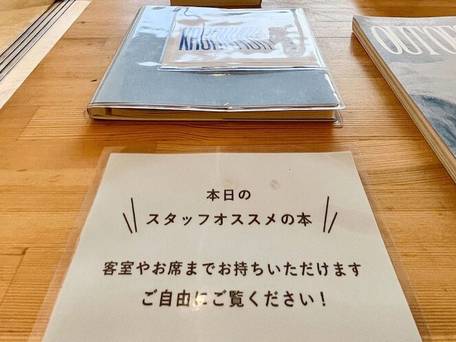 本日の
スタッフオススメの本
客室やお席までお持ちいただけます
ご自由にご覧ください！